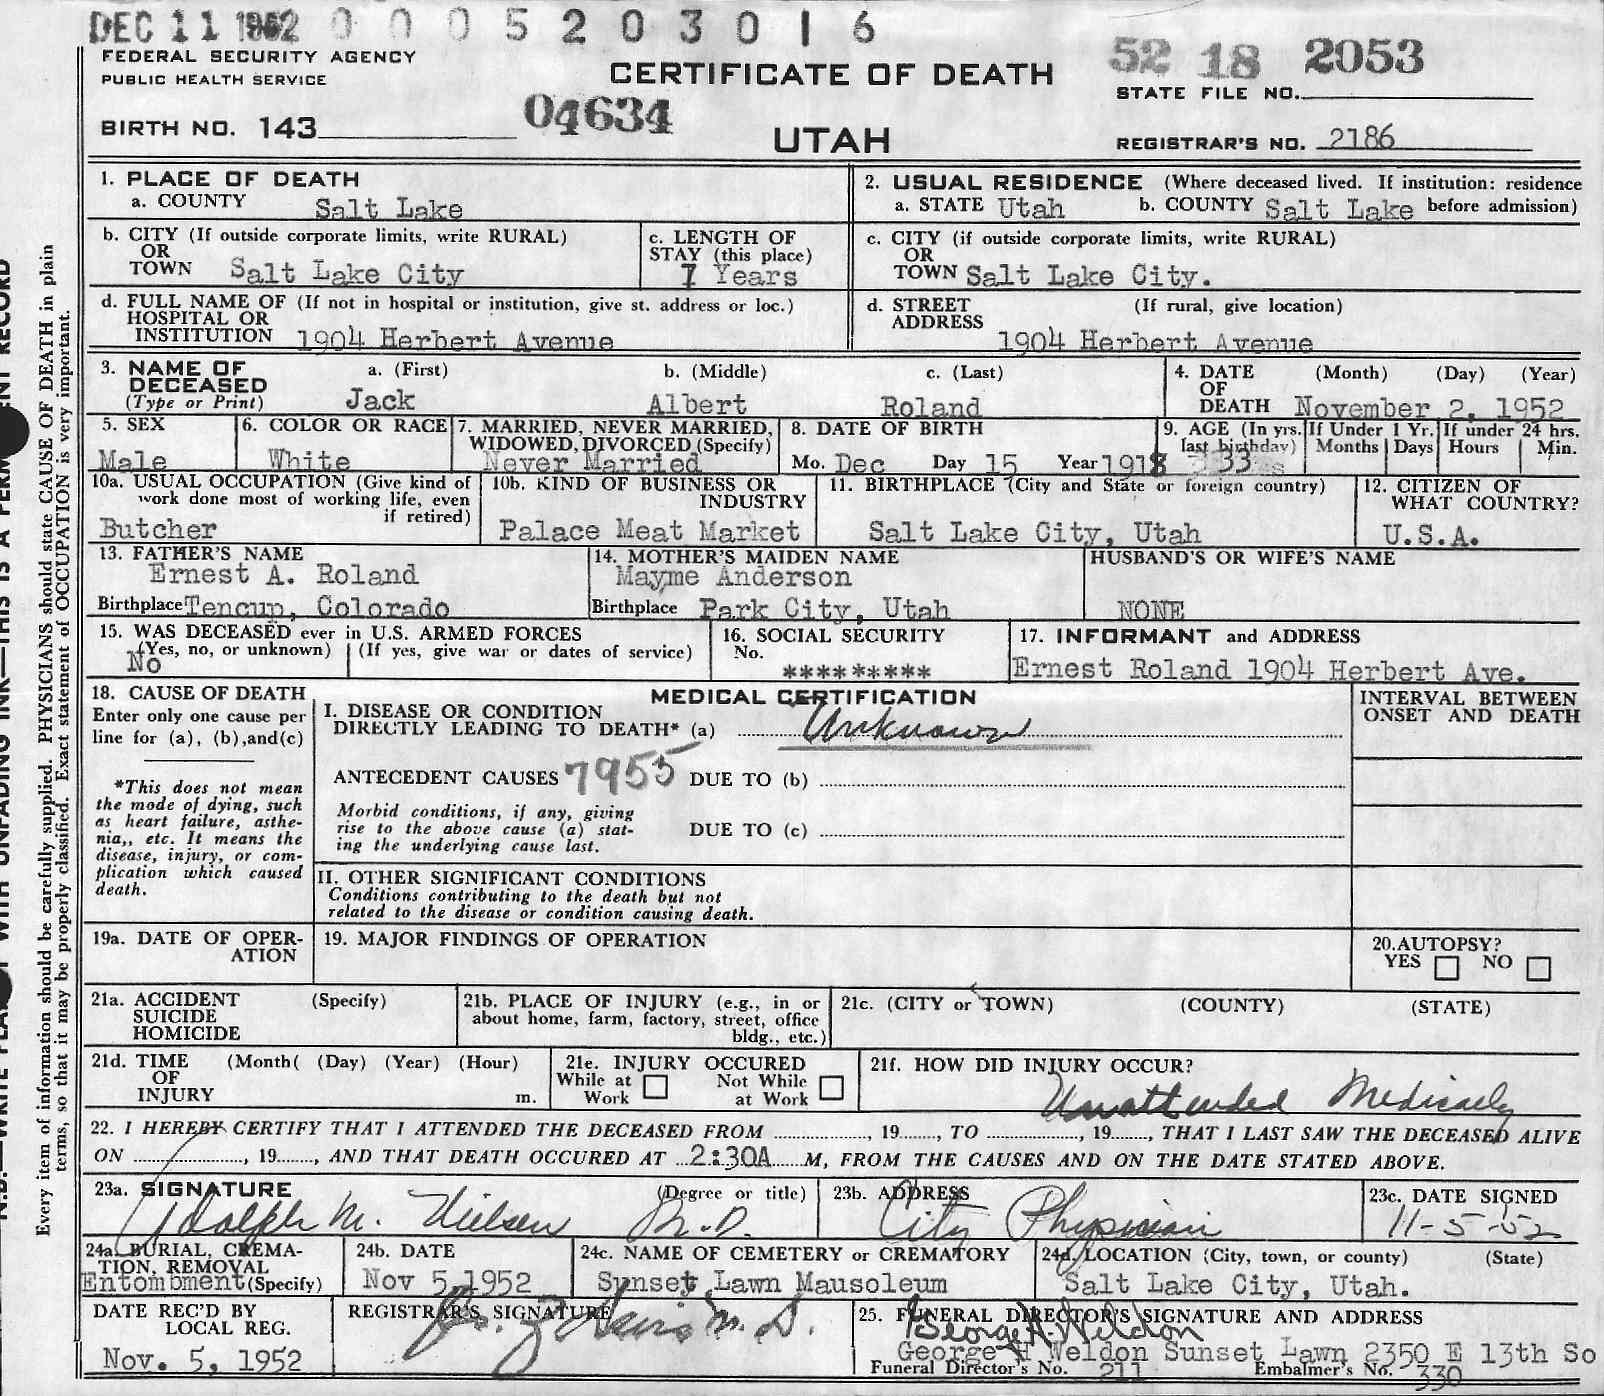 DEC 11 1952 0 0 0 5 2 0 3 0 1 6
FEDERAL SECURITY AGENCY
PUBLIC HEALTH SERVICE
CERTIFICATE OF DEATH
52 18 2053
STATE FILE NO.
BIRTH NO. 143
04634
UTAH
REGISTRAR'S NO. 2186
1. PLACE OF DEATH
a. COUNTY Salt Lake
2. USUAL RESIDENCE (Where deceased lived. If institution: residence
a. STATE Utah b. COUNTY Salt Lake before admission)
b. CITY (If outside corporate limits, write RURAL)
OR
TOWN Salt Lake City
c. LENGTH OF
STAY (this place)
7 Years
c. CITY (if outside corporate limits, write RURAL)
OR
TOWN Salt Lake City.
d. FULL NAME OF (If not in hospital or institution, give st. address or loc.)
HOSPITAL OR
INSTITUTION 1904 Herbert Avenue
d. STREET (If rural, give location)
ADDRESS
1904 Herbert Avenue
3. NAME OF
DECEASED
(Type or Print)
a. (First)
Jack
b. (Middle)
Albert
c. (Last)
Roland
4. DATE (Month) (Day) (Year)
OF
DEATH November 2, 1952
5. SEX
Male
6. COLOR OR RACE
White
7. MARRIED, NEVER MARRIED,
WIDOWED, DIVORCED (Specify)
Never Married
8. DATE OF BIRTH
Mo. Dec Day 15 Year 1918
9. AGE (In yrs.
last birthday)
33
If Under 1 Yr.
Months Days
If under 24 hrs.
Hours Min.
10a. USUAL OCCUPATION (Give kind of
work done most of working life, even
if retired)
Butcher
10b. KIND OF BUSINESS OR
INDUSTRY
Palace Meat Market
11. BIRTHPLACE (City and State or foreign country)
Salt Lake City, Utah
12. CITIZEN OF
WHAT COUNTRY?
U.S.A.
13. FATHER'S NAME
Ernest A. Roland
Birthplace Tencup, Colorado
14. MOTHER'S MAIDEN NAME
Mayme Anderson
Birthplace Park City, Utah
HUSBAND'S OR WIFE'S NAME
NONE
15. WAS DECEASED ever in U.S. ARMED FORCES
(Yes, no, or unknown) (If yes, give war or dates of service)
No
16. SOCIAL SECURITY
No.
*********
17. INFORMANT and ADDRESS
Ernest Roland 1904 Herbert Ave.
18. CAUSE OF DEATH
Enter only one cause per
line for (a), (b),and(c)
*This does not mean
the mode of dying, such
as heart failure, asthe-
nia,, etc. It means the
disease, injury, or com-
plication which caused
death.
MEDICAL CERTIFICATION
I. DISEASE OR CONDITION
DIRECTLY LEADING TO DEATH* (a) Unknown
ANTECEDENT CAUSES 7955 DUE TO (b)
Morbid conditions, if any, giving
rise to the above cause (a) stat-
ing the underlying cause last.
DUE TO (c)
INTERVAL BETWEEN
ONSET AND DEATH
II. OTHER SIGNIFICANT CONDITIONS
Conditions contributing to the death but not
related to the disease or condition causing death.
19a. DATE OF OPER-
ATION
19. MAJOR FINDINGS OF OPERATION
20. AUTOPSY?
YES NO
21a. ACCIDENT (Specify)
SUICIDE
HOMICIDE
21b. PLACE OF INJURY (e.g., in or
about home, farm, factory, street, office
bldg., etc.)
21c. (CITY or TOWN) (COUNTY) (STATE)
21d. TIME (Month( (Day) (Year) (Hour)
OF
INJURY m.
21e. INJURY OCCURED
While at Work Not While at Work
21f. HOW DID INJURY OCCUR?
Unattended Medically
22. I HEREBY CERTIFY THAT I ATTENDED THE DECEASED FROM , 19 , TO , 19 , THAT I LAST SAW THE DECEASED ALIVE
ON , 19 , AND THAT DEATH OCCURED AT 2:30A M, FROM THE CAUSES AND ON THE DATE STATED ABOVE.
23a. SIGNATURE (Degree or title)
Adolph M. Nielsen M.D.
23b. ADDRESS
City Physician
23c. DATE SIGNED
11-5-52
24a. BURIAL, CREMA-
TION, REMOVAL
Entombment (Specify)
24b. DATE
Nov 5, 1952
24c. NAME OF CEMETERY or CREMATORY
Sunset Lawn Mausoleum
24d. LOCATION (City, town, or county) (State)
Salt Lake City, Utah.
DATE REC'D BY
LOCAL REG.
Nov. 5, 1952
REGISTRAR'S SIGNATURE
M.D.
25. FUNERAL DIRECTOR'S SIGNATURE AND ADDRESS
George H. Weldon
George H Weldon Sunset Lawn 2350 E 13th So
Funeral Director's No. 211 Embalmer's No. 330
Every item of information should be carefully supplied. PHYSICIANS should state CAUSE OF DEATH in plain
terms, so that it may be properly classified. Exact statement of OCCUPATION is very important.